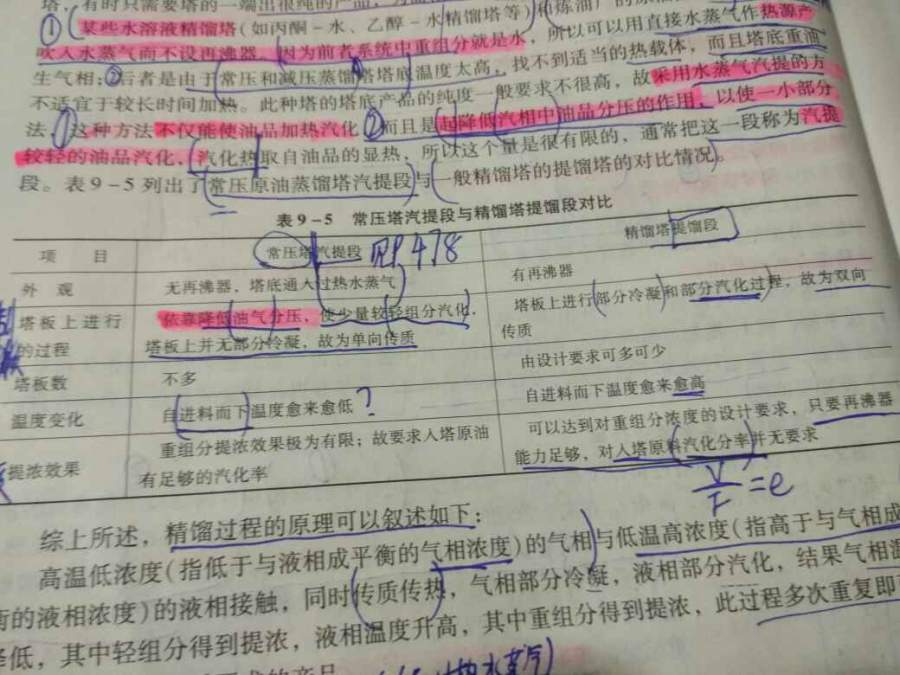 塔，有时只需要塔的一端出很纯的产品，为
① 某些水溶液精馏塔(如丙酮-水、乙醇-水精馏塔等)和炼油厂的原油
吹入水蒸气而不设再沸器，因为前者系统中重组分就是水，所以可以用直接水蒸气作热源产
生气相；②后者是由于常压和减压蒸馏塔塔底温度太高，找不到适当的热载体，而且塔底重油
不适宜于较长时间加热。此种塔的塔底产品的纯度一般要求不很高，故采用水蒸气汽提的方
法，①这种方法不仅能使油品加热汽化，②而且是起降低汽相中油品分压的作用，以使一小部分
较轻的油品汽化，汽化热取自油品的显热，所以这个量是很有限的，通常把这一段称为汽提
段。表9-5列出了常压原油蒸馏塔汽提段与一般精馏塔的提馏塔的对比情况。
表9-5 常压塔汽提段与精馏塔提馏段对比
项 目 常压塔汽提段 P478 精馏塔提馏段
外 观 无再沸器，塔底通入过热水蒸气 有再沸器
塔板上进行 依靠降低油气分压，使少量较轻组分汽化， 塔板上进行部分冷凝和部分汽化过程，故为双向
的过程 塔板上并无部分冷凝，故为单向传质 传质
塔板数 不多 由设计要求可多可少
温度变化 自进料而下温度愈来愈低 ? 自进料而下温度愈来愈高
提浓效果 重组分提浓效果极为有限；故要求入塔原油 可以达到对重组分浓度的设计要求，只要再沸器
有足够的汽化率 能力足够，对入塔原料汽化分率并无要求
V/F=e
综上所述，精馏过程的原理可以叙述如下：
高温低浓度(指低于与液相成平衡的气相浓度)的气相与低温高浓度(指高于与气相成
衡的液相浓度)的液相接触，同时传质传热，气相部分冷凝，液相部分汽化，结果气相温
降低，其中轻组分得到提浓，液相温度升高，其中重组分得到提浓，此过程多次重复即
的产品
水蒸气)